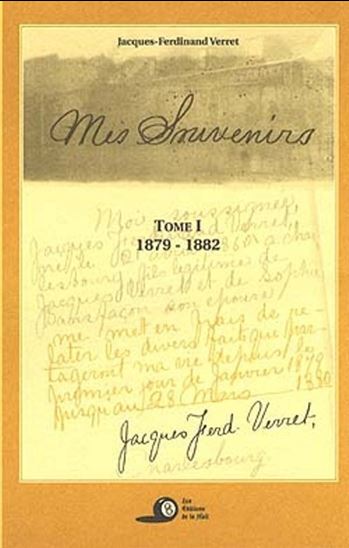 Jacques-Ferdinand Verret
Mes Souvenirs
TOME I
1879 - 1882
Moi soussigné,
Jacques Verret,
né le avril à Char
lesbourg, fils légitime de
Jacques Verret et de Sophie
son épouse
me met en frais de re-
later les divers faits qui par-
tageront ma vie depuis le
premier jour de Janvier 1879
jusqu'au 28 Mars 1880
Jacques Ferd. Verret,
Charlesbourg.
8
Les
Éditions
de la Huit